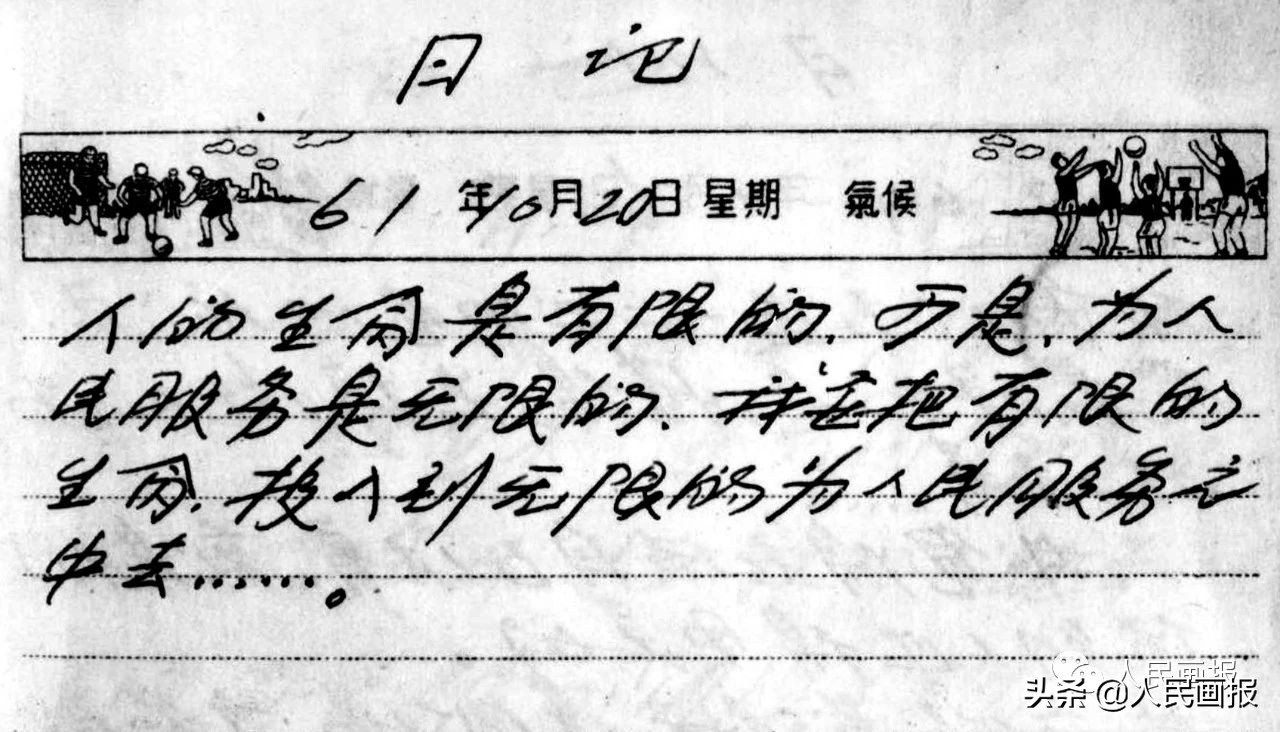 日记
61年10月20日星期 氣候
人的生命是有限的.可是.为人
民服务是无限的.我要把有限的
生命.投入到无限的为人民服务之
中去.......。
人民画报
头条@人民画报